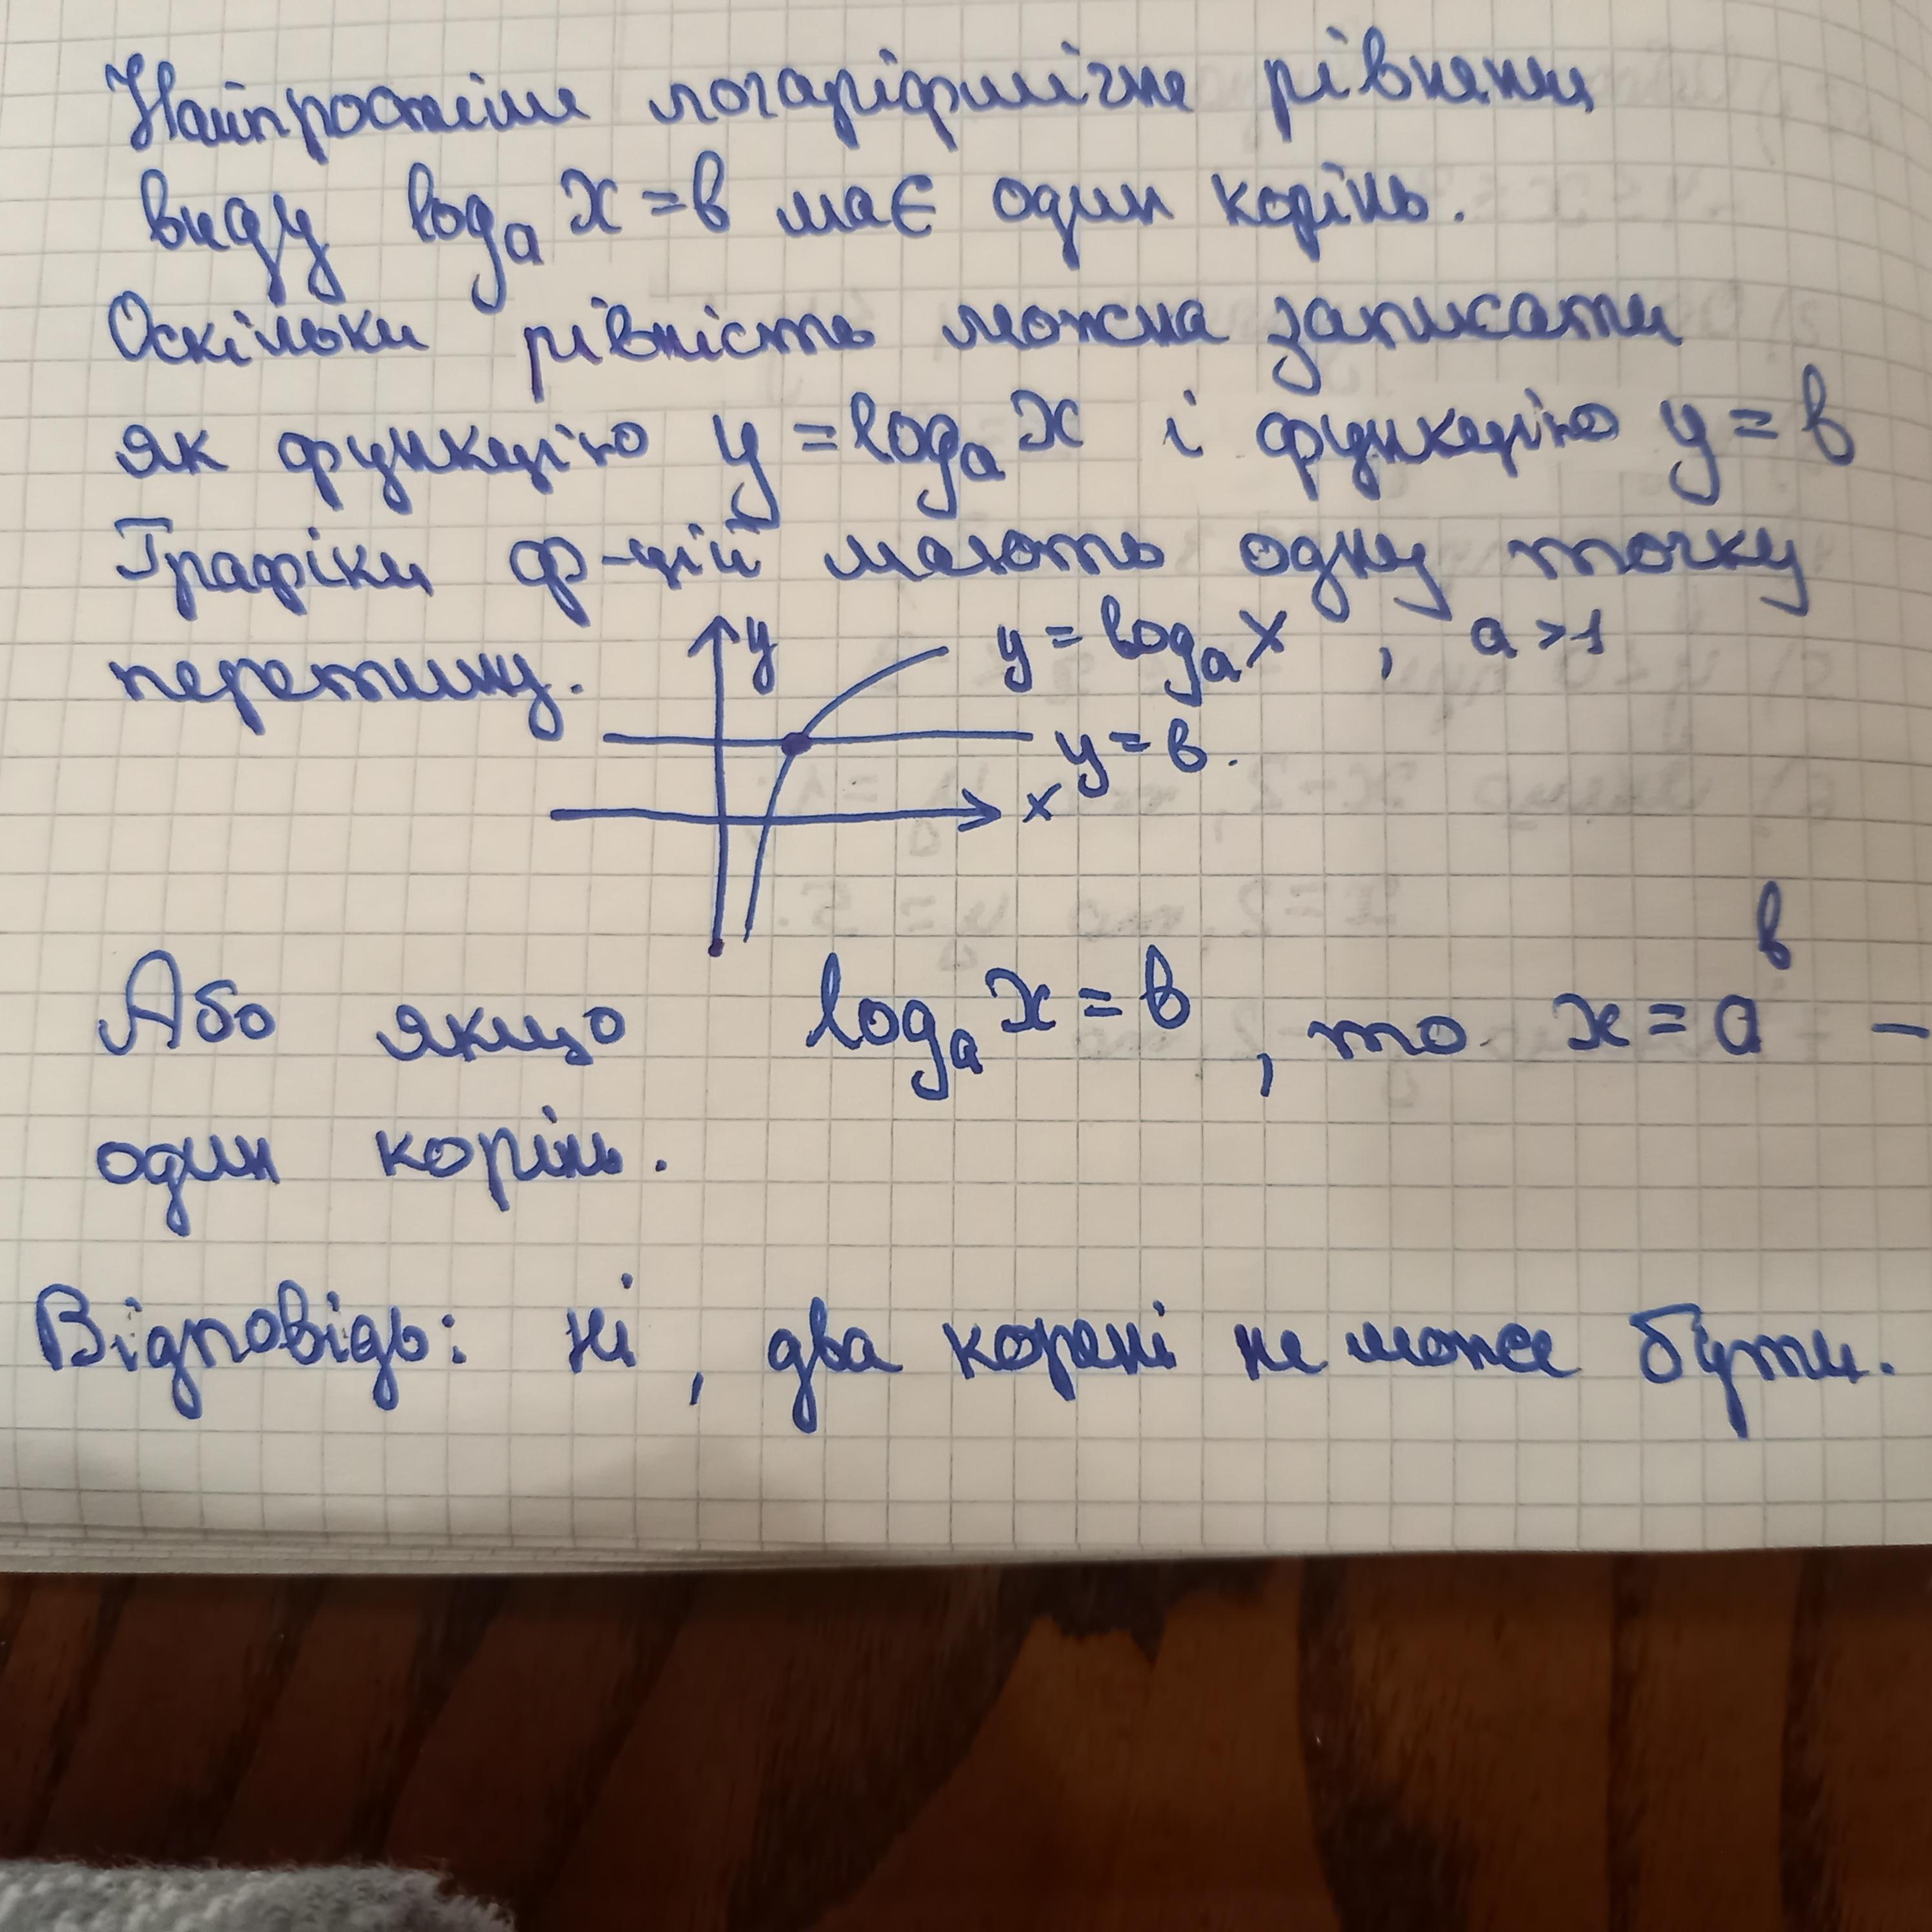 Найпростіше логаріфмічне рівняння
виду logₐ x = b має один корінь.
Оскільки рівність можна записати
як функцію y = logₐ x і функцію y = b
Графіки ф-цій мають одну точку
перетину.
y
y = logₐ x , a > 1
y = b.
x
Або якщо logₐ x = b , то x = aᵇ –
один корінь.
Відповідь: ні , два корені не може бути.